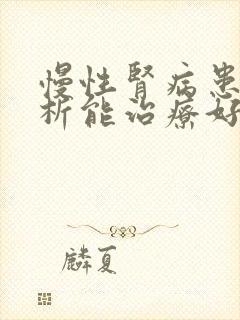 慢性腎病患
析能治療好
麟夏